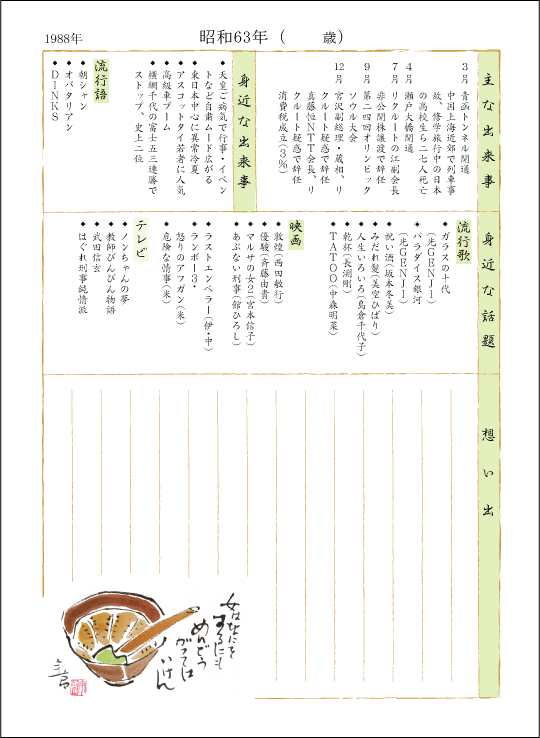 1988年
昭和63年(　　歳)
主な出来事
3月 青函トンネル開通
中国上海近郊で列車事
故、修学旅行中の日本
の高校生ら二七人死亡
4月 瀬戸大橋開通
7月 リクルートの江副会長
非公開株譲渡で辞任
9月 第二四回オリンピック
ソウル大会
12月 宮沢副総理・蔵相、リ
クルート疑惑で辞任
真藤恒NTT会長、リ
クルート疑惑で辞任
消費税成立(3%)
身近な出来事
◆天皇ご病気で行事・イベン
トなど自粛ムード広がる
◆東日本中心に異常冷夏
◆アスコットタイ若者に人気
◆高級車ブーム
◆横綱千代の富士五三連勝で
ストップ、史上二位
流行語
◆朝シャン
◆オバタリアン
◆DINKS
身近な話題
流行歌
◆ガラスの十代
(光GENJI)
◆パラダイス銀河
(光GENJI)
◆祝い酒(坂本冬美)
◆みだれ髪(美空ひばり)
◆人生いろいろ(島倉千代子)
◆乾杯(長渕剛)
◆TATOO(中森明菜)
映画
◆敦煌(西田敏行)
◆優駿(斉藤由貴)
◆マルサの女2(宮本信子)
◆あぶない刑事(舘ひろし)
◆ラストエンペラー(伊・中)
◆ランボー3・
怒りのアフガン(米)
◆危険な情事(米)
テレビ
◆ノンちゃんの夢
◆教師びんびん物語
◆武田信玄
◆はぐれ刑事純情派
想い出
なにを
するにも
めんどう
がっては
いけん